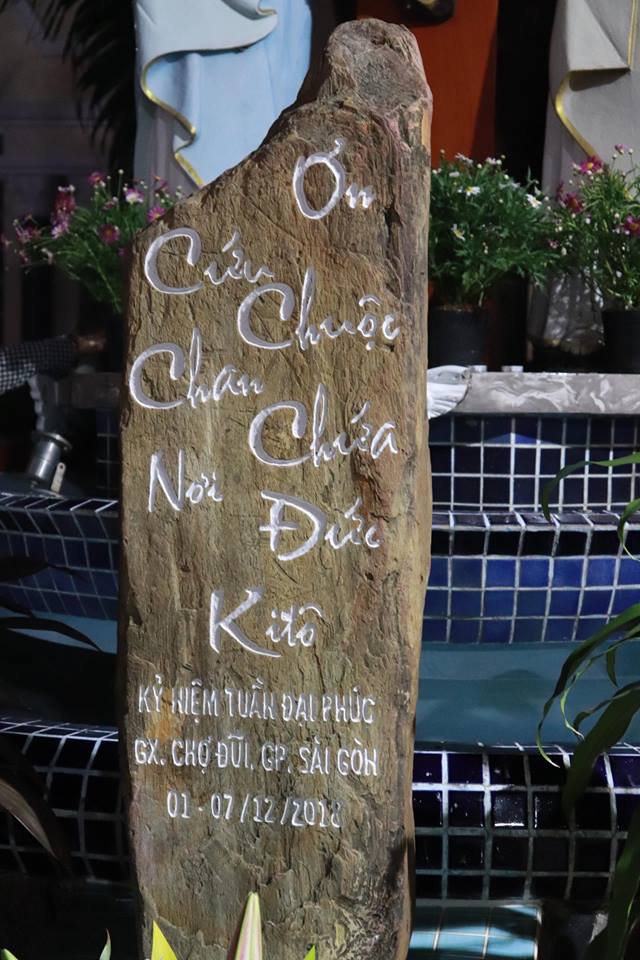 Ơn
Cứu
Chuộc
Chan
Chứa
Nơi
Đức
Kitô
KỶ NIỆM TUẦN ĐẠI PHÚC
GX. CHỢ ĐŨI, GP. SÀI GÒN
01 - 07/12/2018